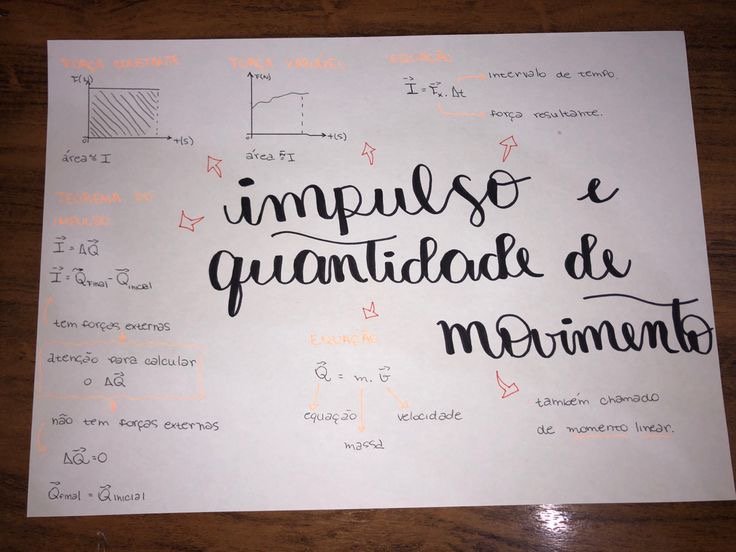 FORÇA CONSTANTE
F(N)
0
t(s)
área ≅ I
FORÇA VARIÁVEL
F(N)
0
t(s)
área ≅ I
EQUAÇÃO
I = Fx. Δt
intervalo de tempo.
força resultante.
impulso e
quantidade de
movimento
TEOREMA DO
IMPULSO
I = ΔQ
I = QFinal - Qinicial
tem forças externas
atenção para calcular
o ΔQ
não tem forças externas
ΔQ = 0
QFinal = Qinicial
EQUAÇÃO
Q = m. v
equação
massa
velocidade
também chamado
de momento linear.